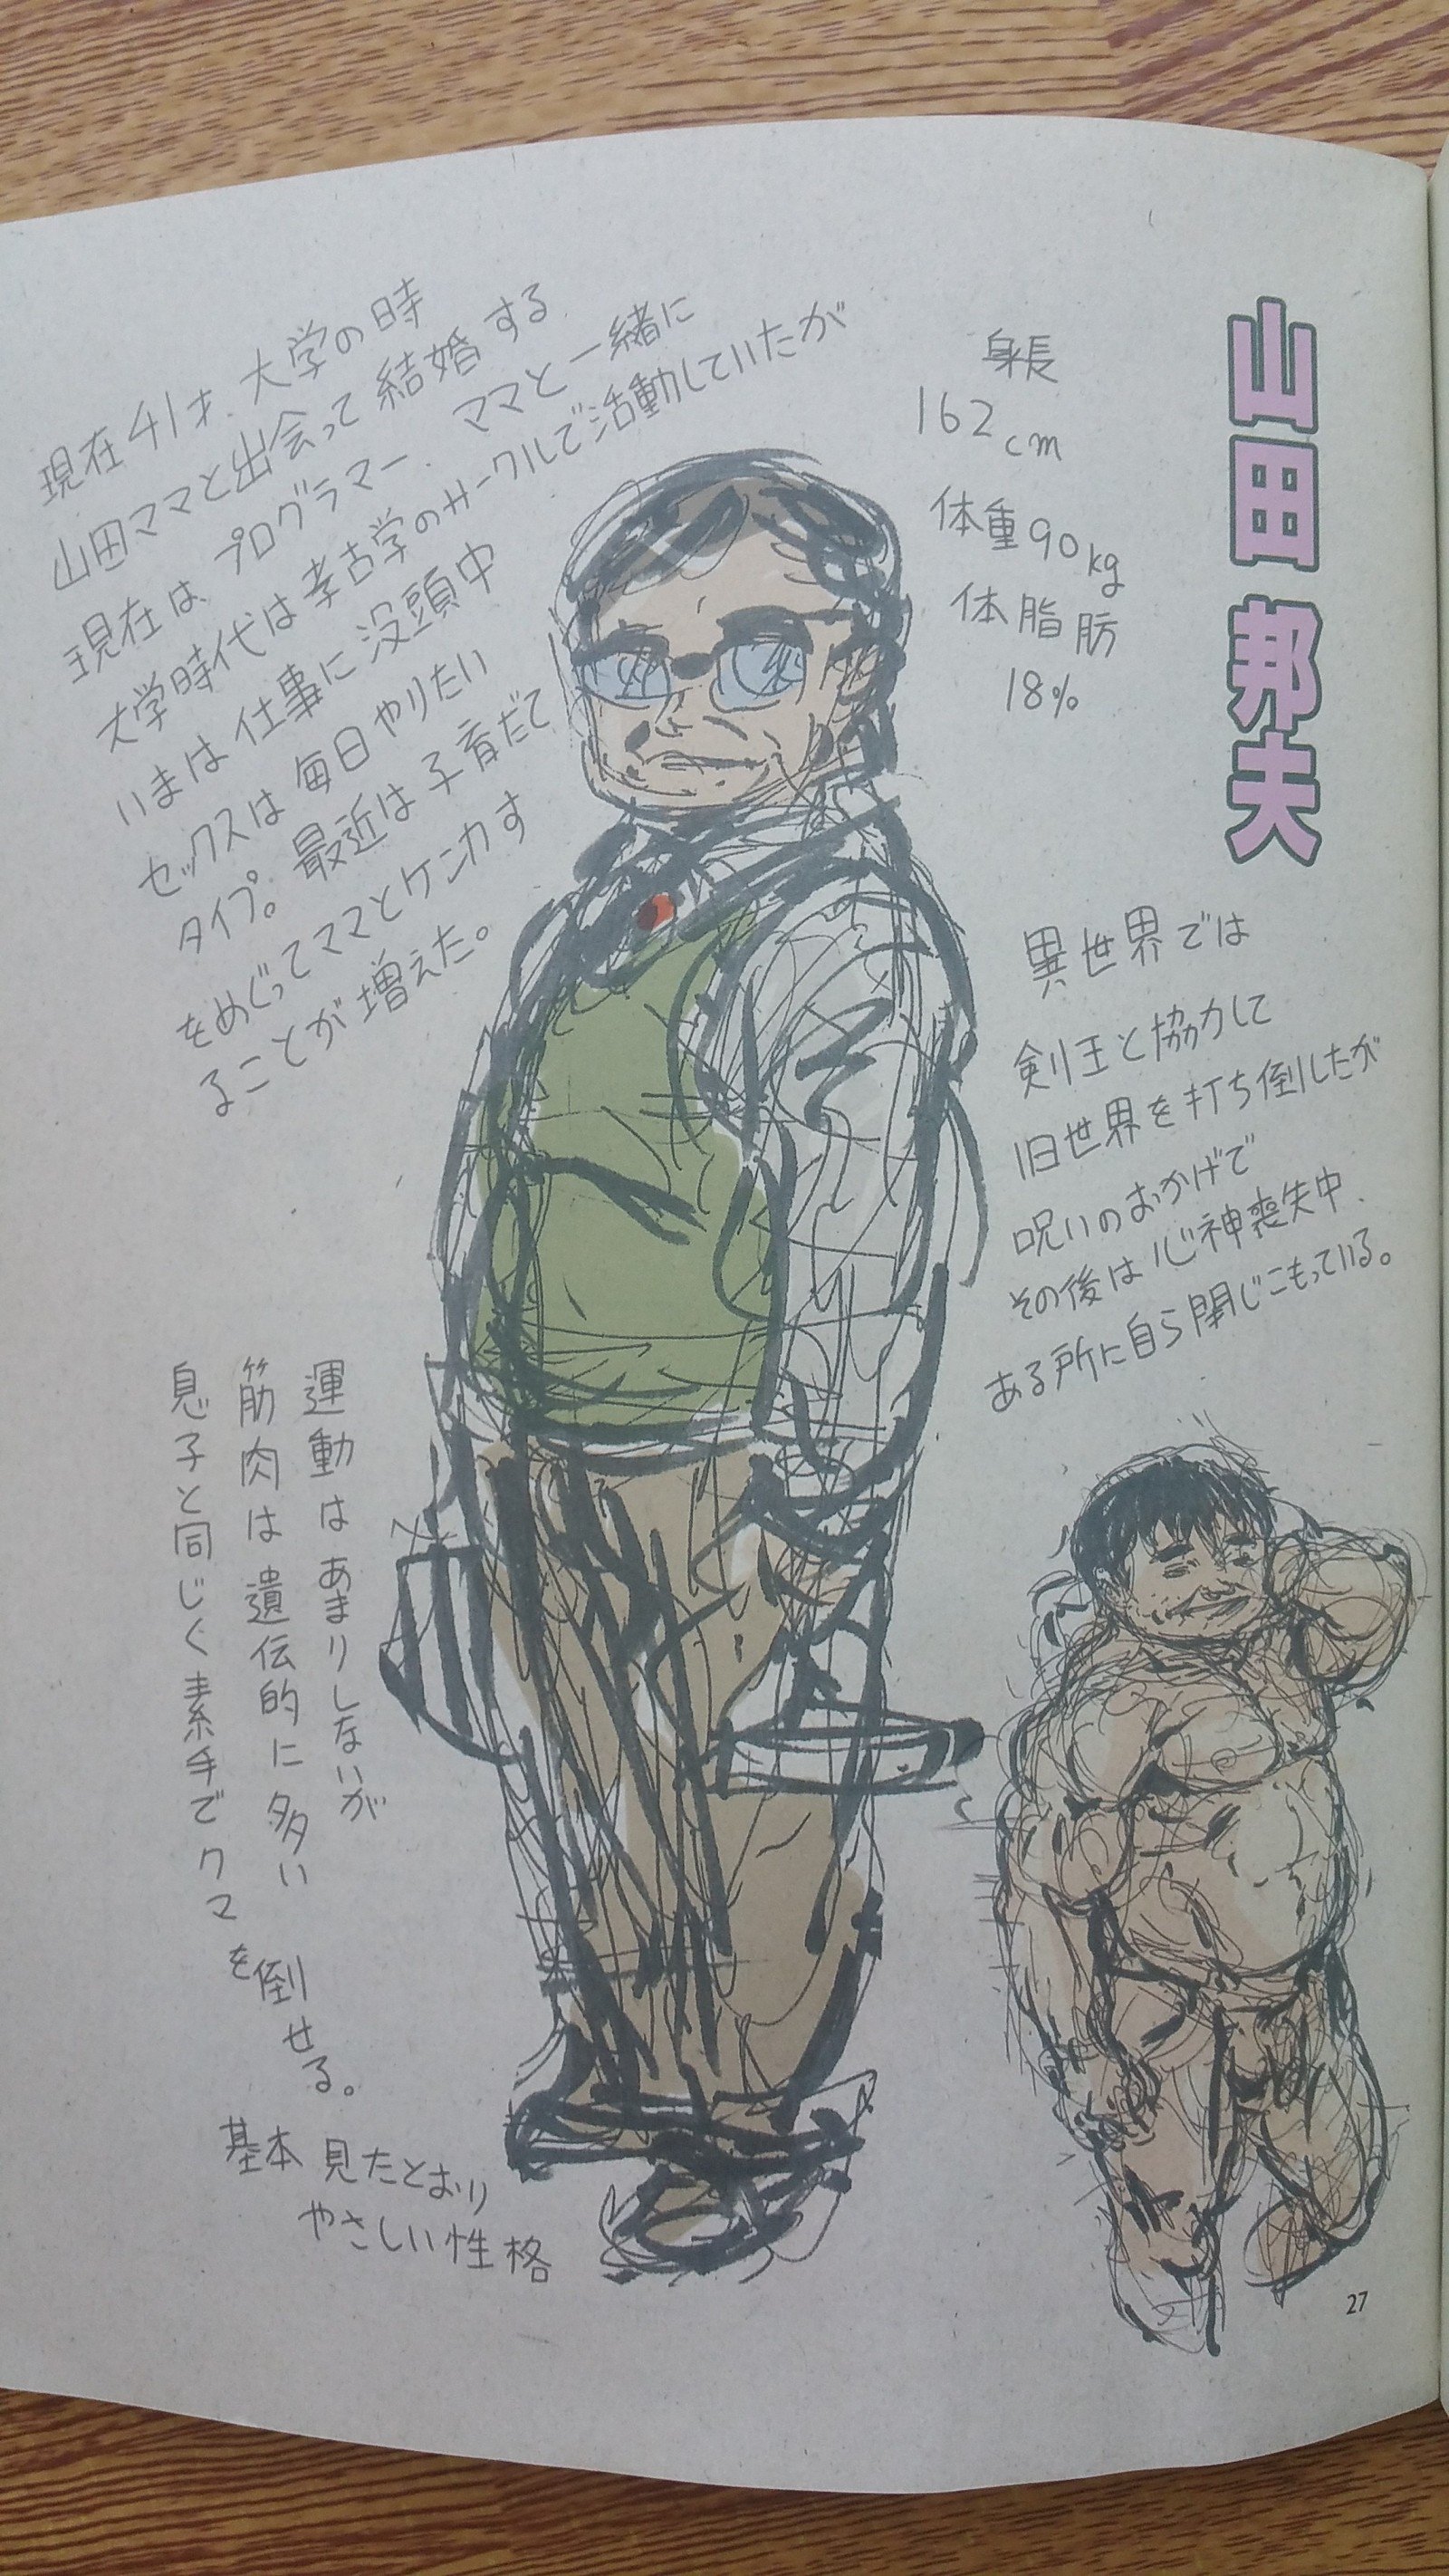 山田 邦夫
身長
162cm
体重90kg
体脂肪
18%
現在41才、大学の時
山田ママと出会って結婚する
現在は プログラマー、ママと一緒に
大学時代は考古学のサークルで活動していたが
いまは仕事に没頭中
セックスは毎日やりたい
タイプ。最近は子育だて
をめぐってママとケンカす
ることが増えた。
異世界では
剣王と協力して
旧世界を打ち倒したが
呪いのおかげで
その後は心神喪失中、
ある所に自ら閉じこもっている。
運動はあまりしないが
筋肉は遺伝的に多い
息子と同じく素手でクマを倒せる。
基本 見たとおり
やさしい性格
27